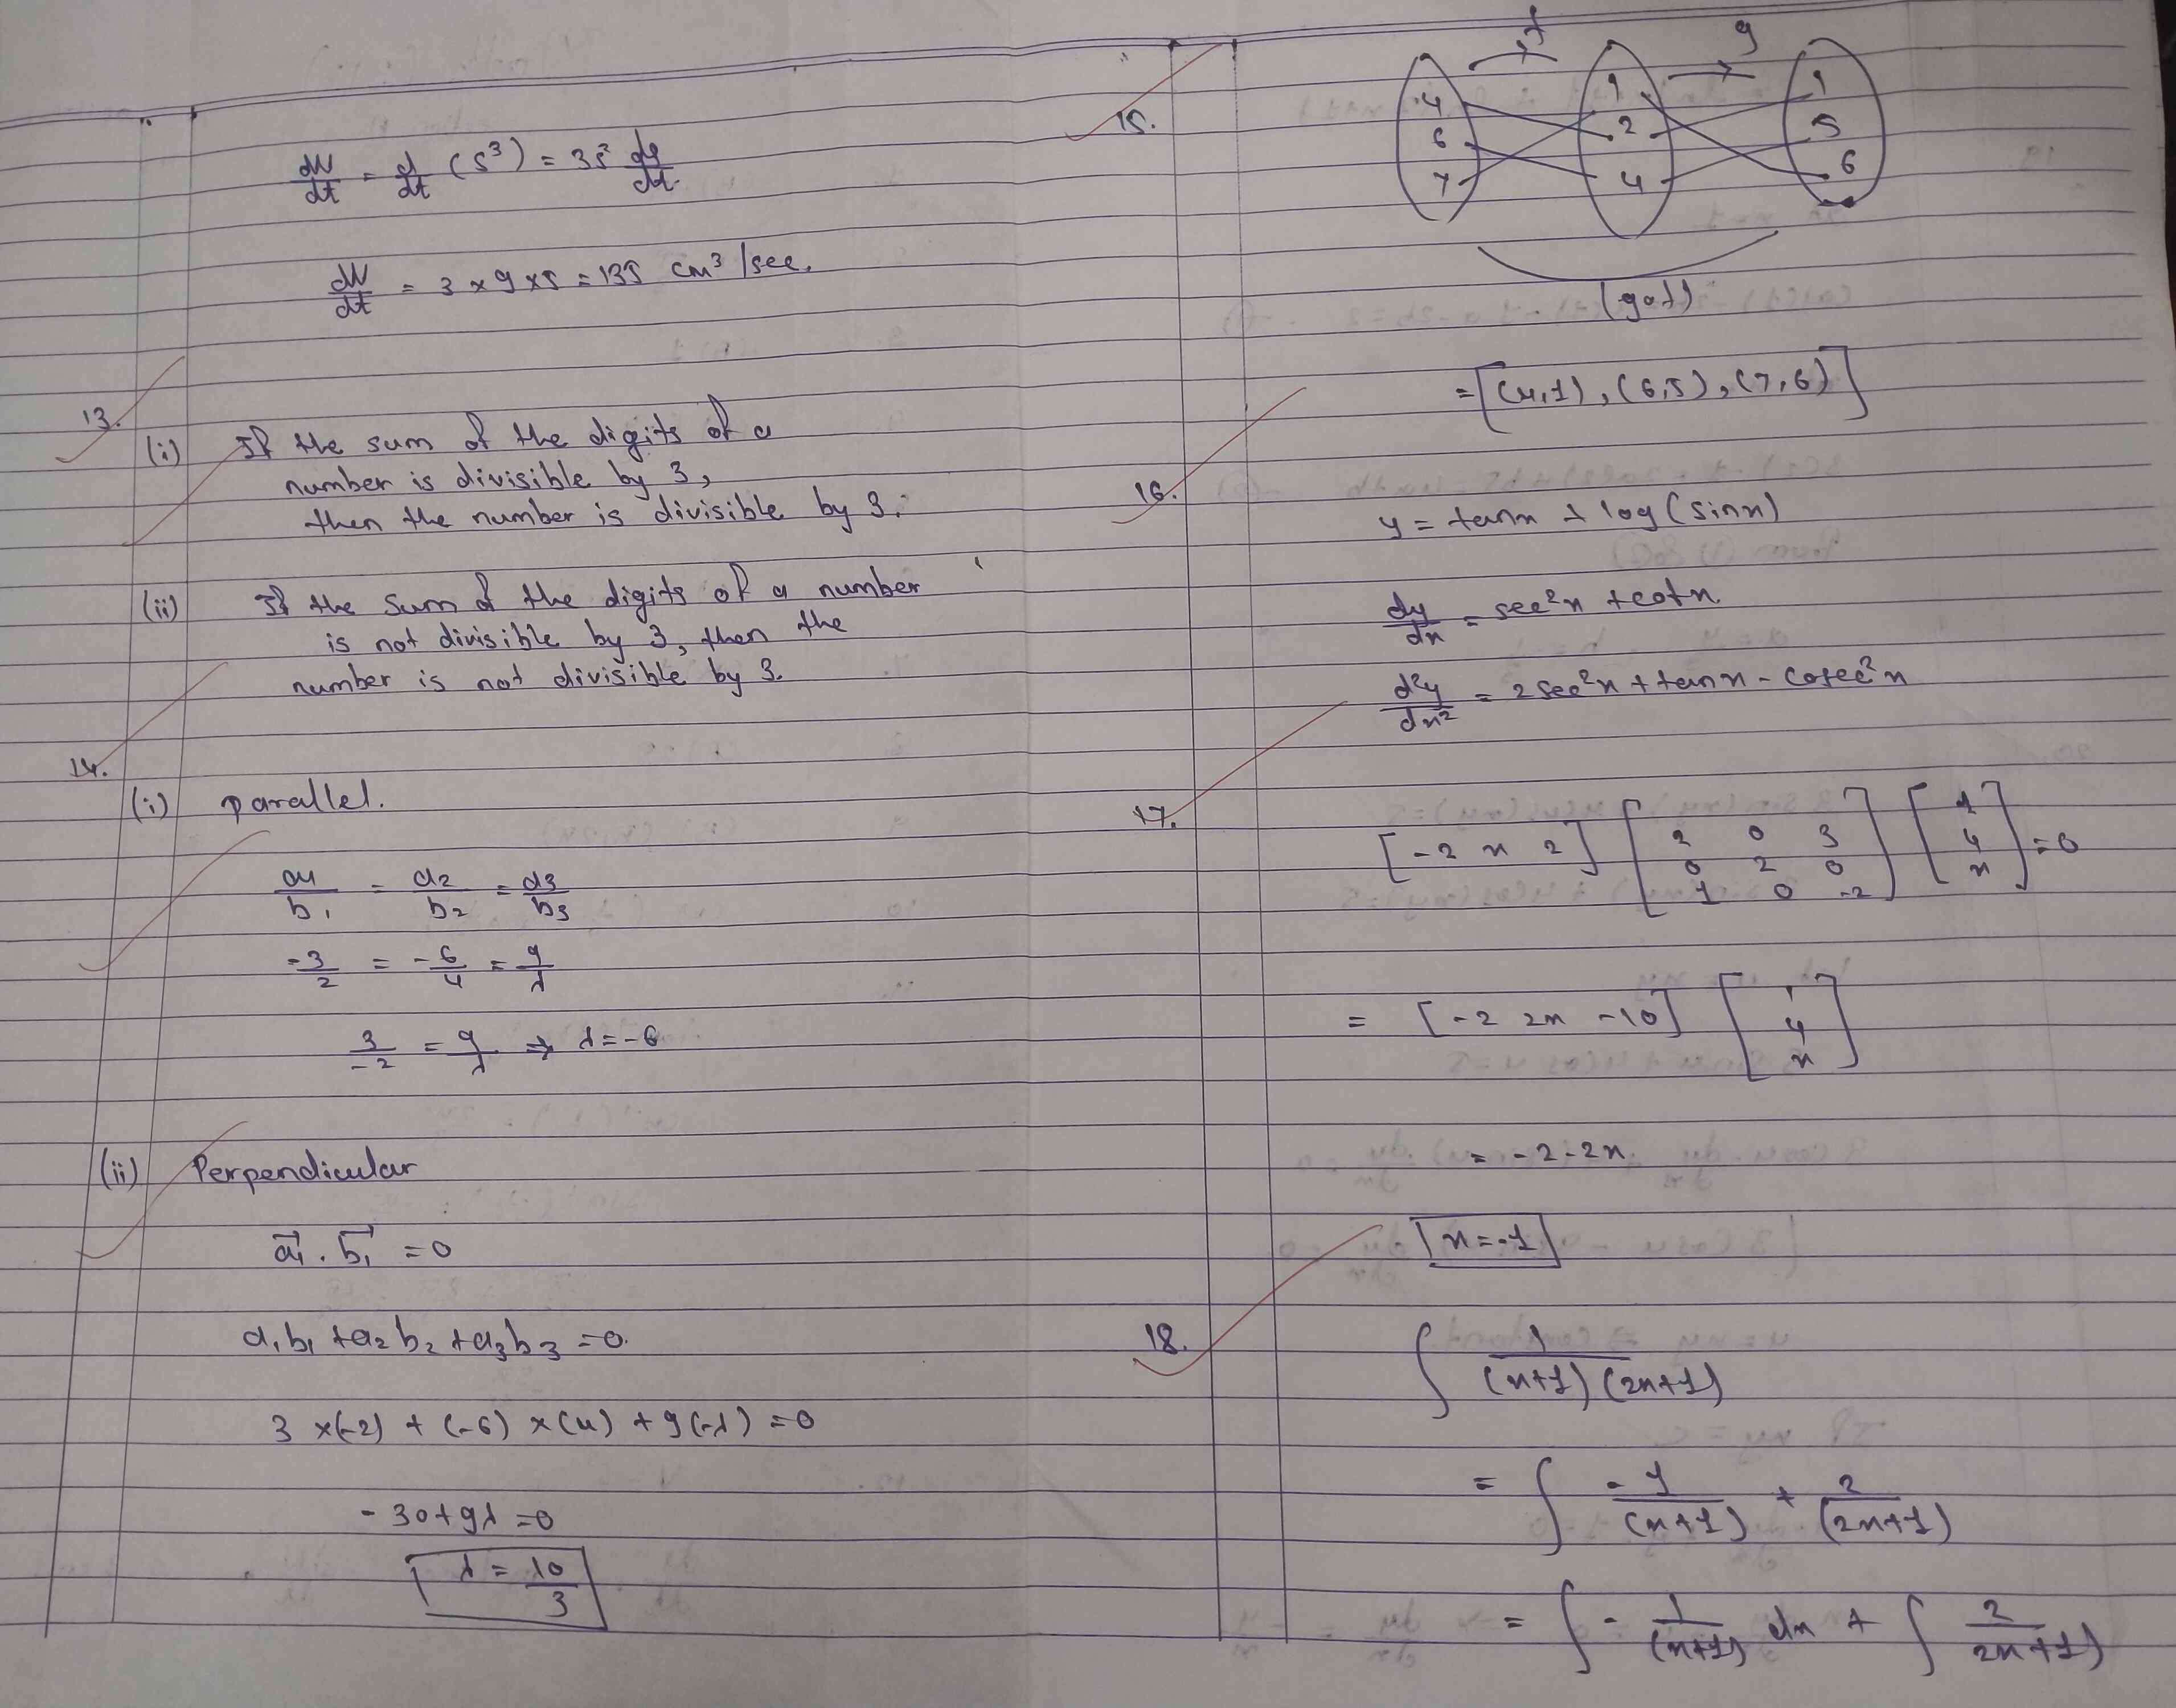 dV/dt = d/dt (s³) = 3s² ds/dt
dV/dt = 3 × 9 × 5 = 135 cm³/sec.
13.
(i) If the sum of the digits of a
number is divisible by 3,
then the number is divisible by 3.
(ii) If the sum of the digits of a number
is not divisible by 3, then the
number is not divisible by 3.
14.
(i) parallel.
a1/b1 = a2/b2 = a3/b3
-3/2 = -6/4 = 9/λ
3/-2 = 9/λ ⇒ λ = -6
(ii) Perpendicular
a⃗1 . b⃗1 = 0
a1b1 + a2b2 + a3b3 = 0.
3 × (-2) + (-6) × (4) + 9(-λ) = 0
-30 + 9λ = 0
λ = 10/3
15.
f g
4 1 1
6 2 5
7 4 6
(gof)
= [(4,1), (6,5), (7,6)]
16.
y = tanx + log(sinx)
dy/dx = sec²x + cotx.
d²y/dx² = 2sec²x + tanx - cosec²x
17.
[-2 x 2] [2 0 3
0 2 0
1 0 -2] [1
4
x] = 0
= [-2 2x -10] [1
4
x]
= -2-2x.
x = -1
18.
∫ 1/(x+1)(2x+1)
= ∫ -1/(x+1) + 2/(2x+1)
= ∫ - 1/(x+1) dx + ∫ 2/2x+1)